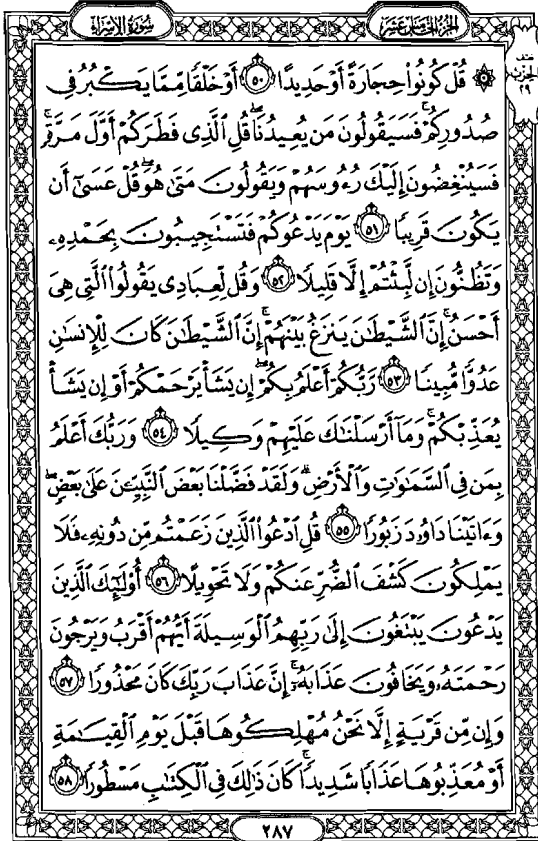 سُورَةُ الإِسْرَاءِ
الجُزْءُ الخَامِسَ عَشَرَ
الحِزْب
٢٩
۞ قُلْ كُونُوا۟ حِجَارَةً أَوْ حَدِيدًا ﴿٥٠﴾ أَوْ خَلْقًا مِّمَّا يَكْبُرُ فِى
صُدُورِكُمْ ۚ فَسَيَقُولُونَ مَن يُعِيدُنَا ۖ قُلِ ٱلَّذِى فَطَرَكُمْ أَوَّلَ مَرَّةٍ ۚ
فَسَيُنْغِضُونَ إِلَيْكَ رُءُوسَهُمْ وَيَقُولُونَ مَتَىٰ هُوَ ۖ قُلْ عَسَىٰٓ أَن
يَكُونَ قَرِيبًا ﴿٥١﴾ يَوْمَ يَدْعُوكُمْ فَتَسْتَجِيبُونَ بِحَمْدِهِۦ
وَتَظُنُّونَ إِن لَّبِثْتُمْ إِلَّا قَلِيلًا ﴿٥٢﴾ وَقُل لِّعِبَادِى يَقُولُوا۟ ٱلَّتِى هِىَ
أَحْسَنُ ۚ إِنَّ ٱلشَّيْطَٰنَ يَنزَغُ بَيْنَهُمْ ۚ إِنَّ ٱلشَّيْطَٰنَ كَانَ لِلْإِنسَٰنِ
عَدُوًّا مُّبِينًا ﴿٥٣﴾ رَّبُّكُمْ أَعْلَمُ بِكُمْ ۖ إِن يَشَأْ يَرْحَمْكُمْ أَوْ إِن يَشَأْ
يُعَذِّبْكُمْ ۚ وَمَآ أَرْسَلْنَٰكَ عَلَيْهِمْ وَكِيلًا ﴿٥٤﴾ وَرَبُّكَ أَعْلَمُ
بِمَن فِى ٱلسَّمَٰوَٰتِ وَٱلْأَرْضِ ۗ وَلَقَدْ فَضَّلْنَا بَعْضَ ٱلنَّبِيِّـۧنَ عَلَىٰ بَعْضٍ ۖ
وَءَاتَيْنَا دَاوُۥدَ زَبُورًا ﴿٥٥﴾ قُلِ ٱدْعُوا۟ ٱلَّذِينَ زَعَمْتُم مِّن دُونِهِۦ فَلَا
يَمْلِكُونَ كَشْفَ ٱلضُّرِّ عَنكُمْ وَلَا تَحْوِيلًا ﴿٥٦﴾ أُو۟لَٰٓئِكَ ٱلَّذِينَ
يَدْعُونَ يَبْتَغُونَ إِلَىٰ رَبِّهِمُ ٱلْوَسِيلَةَ أَيُّهُمْ أَقْرَبُ وَيَرْجُونَ
رَحْمَتَهُۥ وَيَخَافُونَ عَذَابَهُۥٓ ۚ إِنَّ عَذَابَ رَبِّكَ كَانَ مَحْذُورًا ﴿٥٧﴾
وَإِن مِّن قَرْيَةٍ إِلَّا نَحْنُ مُهْلِكُوهَا قَبْلَ يَوْمِ ٱلْقِيَٰمَةِ
أَوْ مُعَذِّبُوهَا عَذَابًا شَدِيدًا ۚ كَانَ ذَٰلِكَ فِى ٱلْكِتَٰبِ مَسْطُورًا ﴿٥٨﴾
٢٨٧